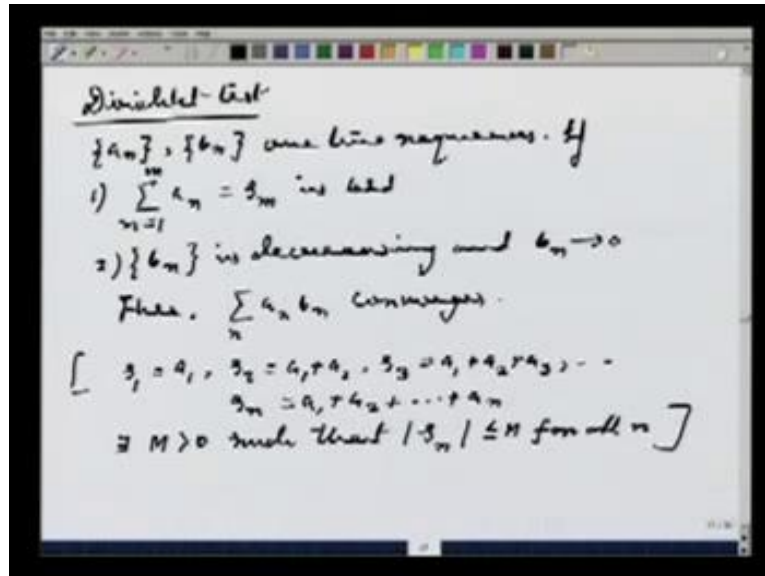 Dirichlet test
{a_n}, {b_n} are two sequences. If
1) \sum_{n=1}^{m} a_n = s_m is bdd
2) {b_n} is decreasing and b_n → 0
Then, \sum_n a_n b_n converges.
[ s_1 = a_1, s_2 = a_1 + a_2, s_3 = a_1 + a_2 + a_3, ...
s_n = a_1 + a_2 + ... + a_n
∃ M > 0 such that |s_n| ≤ M for all n ]